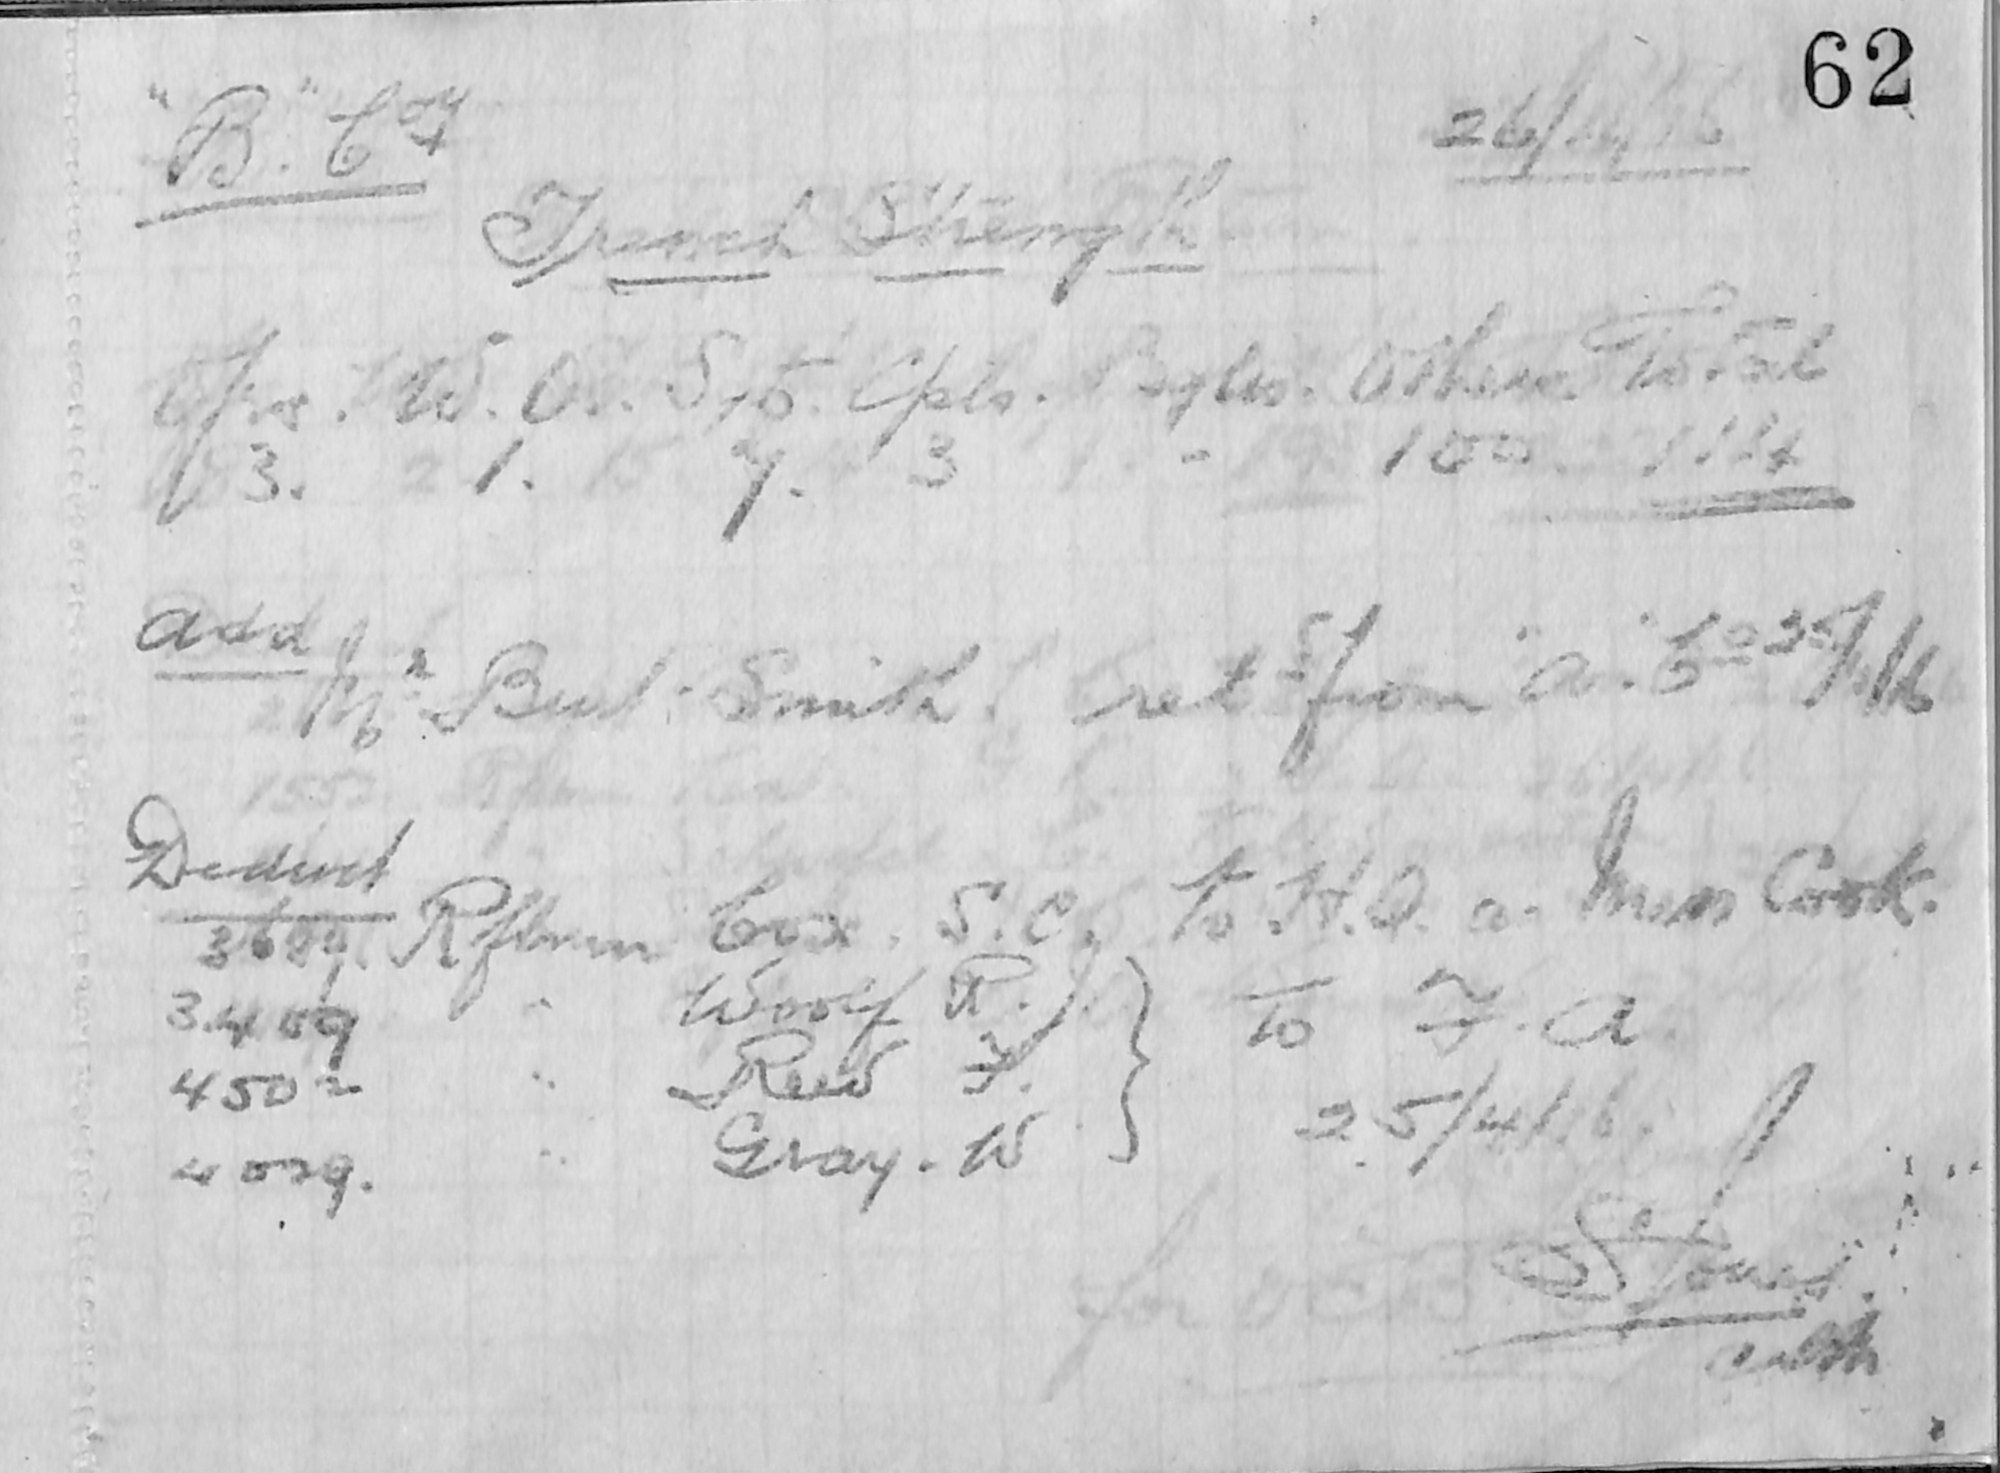 62
"B." Coy
26/4/16
Trench Strength
Ofrs. W. Os. Sgts. Cpls. Bglrs. Others. Total
3. 1. 7. 3 - 100 114
add
Mr Burl. Smith. retd from "A" Co 25/4/16
Deduct
Rflmn Cox. S.C. to H.Q. a. Mess Cook.
3409 " Woolf R.J. } to F.A
4502 " Reed F.
4029. " Gray. W 25/4/16.
for O.C. B